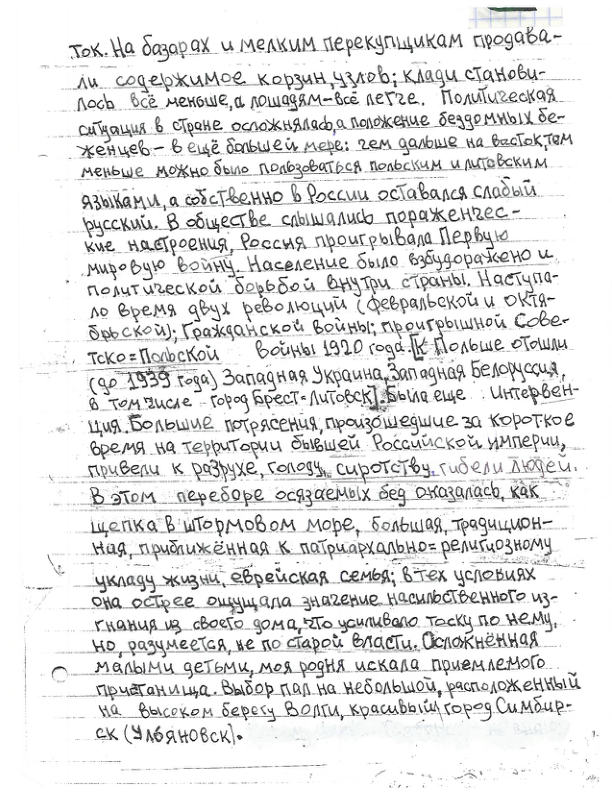 ток. На базарах и мелким перекупщикам продава-
ли содержимое корзин, узлов; клади станови-
лось всё меньше, а лошадям – всё легче. Политическая
ситуация в стране осложнялась, а положение бездомных бе-
женцев – в ещё большей мере: чем дальше на восток, тем
меньше можно было пользоваться польским и литовским
языками, а собственно в России оставался слабый
русский. В обществе слышались пораженчес-
кие настроения, Россия проигрывала Первую
мировую войну. Население было взбудоражено и
политической борьбой внутри страны. Наступа-
ло время двух революций (февральской и октя-
брьской); Гражданской войны; проигрышной Сове-
тско=Польской войны 1920 года. [К Польше отошли
(до 1939 года) Западная Украина, Западная Белоруссия,
в том числе город Брест=Литовск]. Была еще Интервен-
ция. Большие потрясения, произошедшие за короткое
время на территории бывшей Российской империи,
привели к разрухе, голоду, сиротству, гибели людей.
В этом переборе осязаемых бед оказалась, как
щепка в штормовом море, большая, традицион-
ная, приближённая к патриархально=религиозному
укладу жизни, еврейская семья; в тех условиях
она острее ощущала значение насильственного из-
гнания из своего дома, что усиливало тоску по нему,
но, разумеется, не по старой власти. Осложнённая
малыми детьми, моя родня искала приемлемого
пристанища. Выбор пал на небольшой, расположенный
на высоком берегу Волги, красивый город Симбир-
ск (Ульяновск).